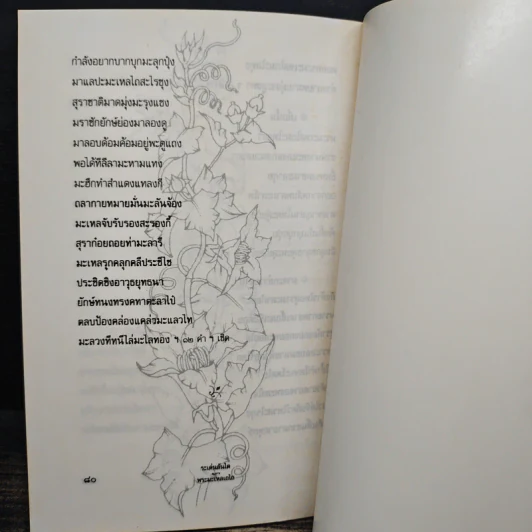 กำลังอยากบากบุกมะลุกปุ๋ง
มาแลปะมะเหลไถสะไรซุง
สุราชาติมาดมุ่งมะรุงแชง
มราซักยักษ์ย่องมาลองดู
มาลอบค้อมค้อมอยู่พะดูแถง
พอได้ทีลีลามะหามแทง
มะฮึกทำสำแดงแทลงกี
ถลากายหมายมั่นมะลันจ้อง
มะเหลจับรับรองสะรองกี้
สุราก๋อยถอยท่ามะลารี่
มะเหลรุกคลุกคลีประชีไซ
ประชิดชิงอาวุธยุทธนา
ยักษ์ทนงทรงคทาตะลาไป่
ตลบป้องคล่องแคล่วมะแลวไท
มะลวงทีหนีไล่มะไลทอง ฯ ๑๒ คำ ฯ เชิด
๘๐
ระเด่นลันได
พระมะเหลเถไถ